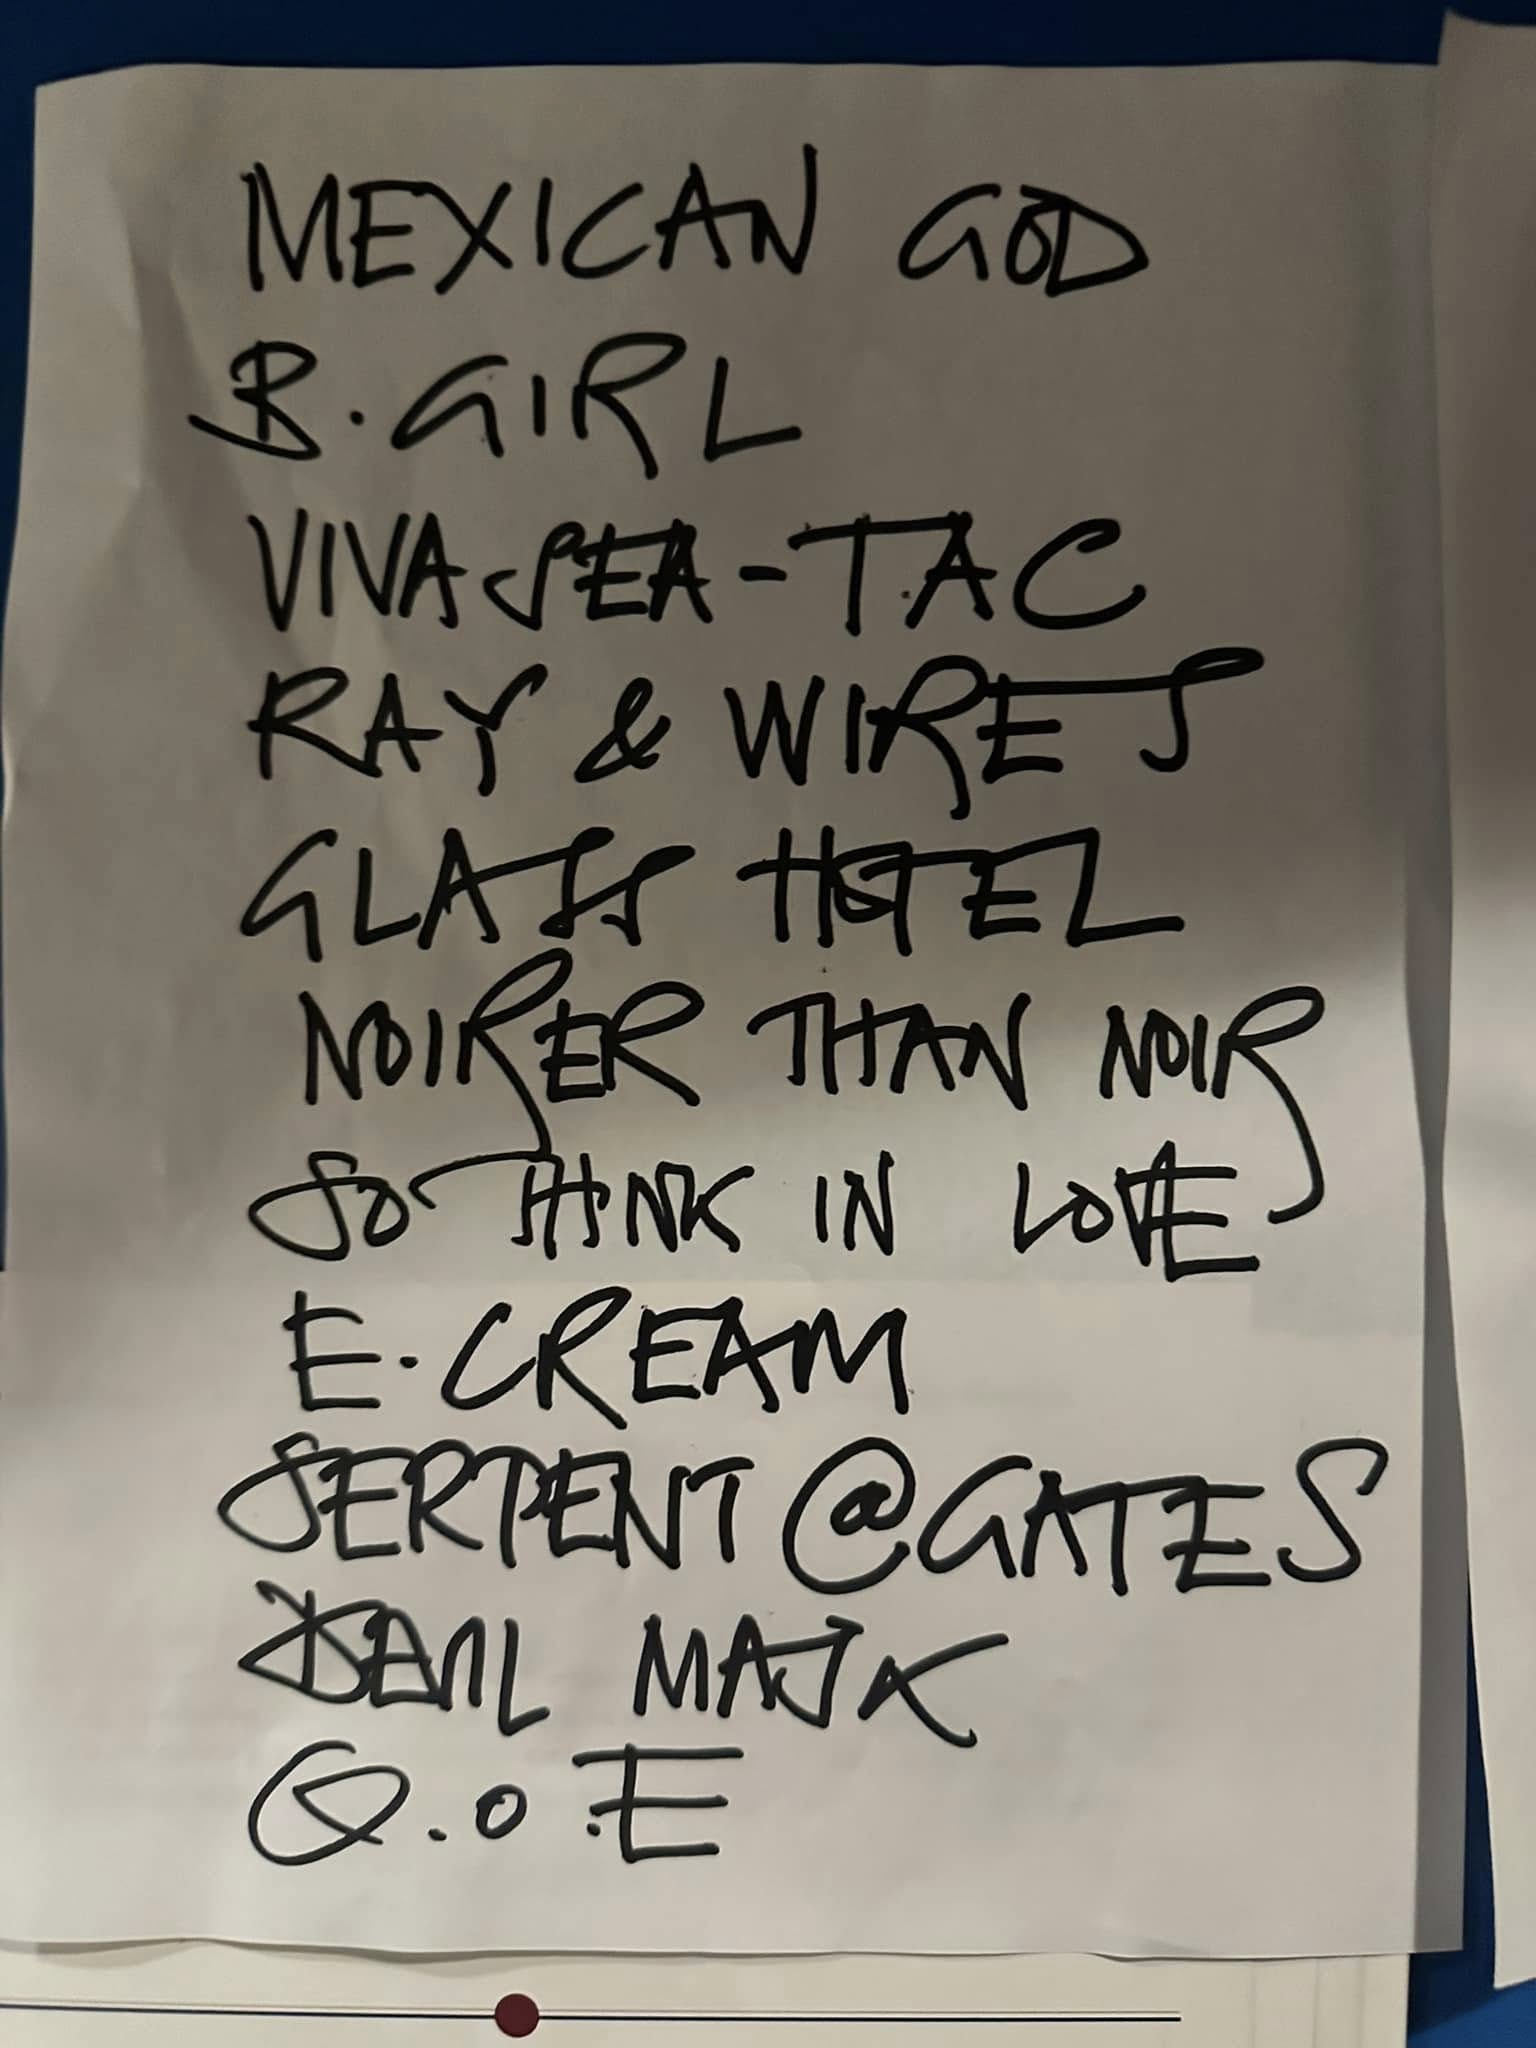 MEXICAN GOD
B. GIRL
VIVA SEA-TAC
RAY & WIRES
GLASS HOTEL
NOIRER THAN NOIR
SO THINK IN LOVE
E. CREAM
SERPENT @ GATES
DEVIL MASK
Q.O.E